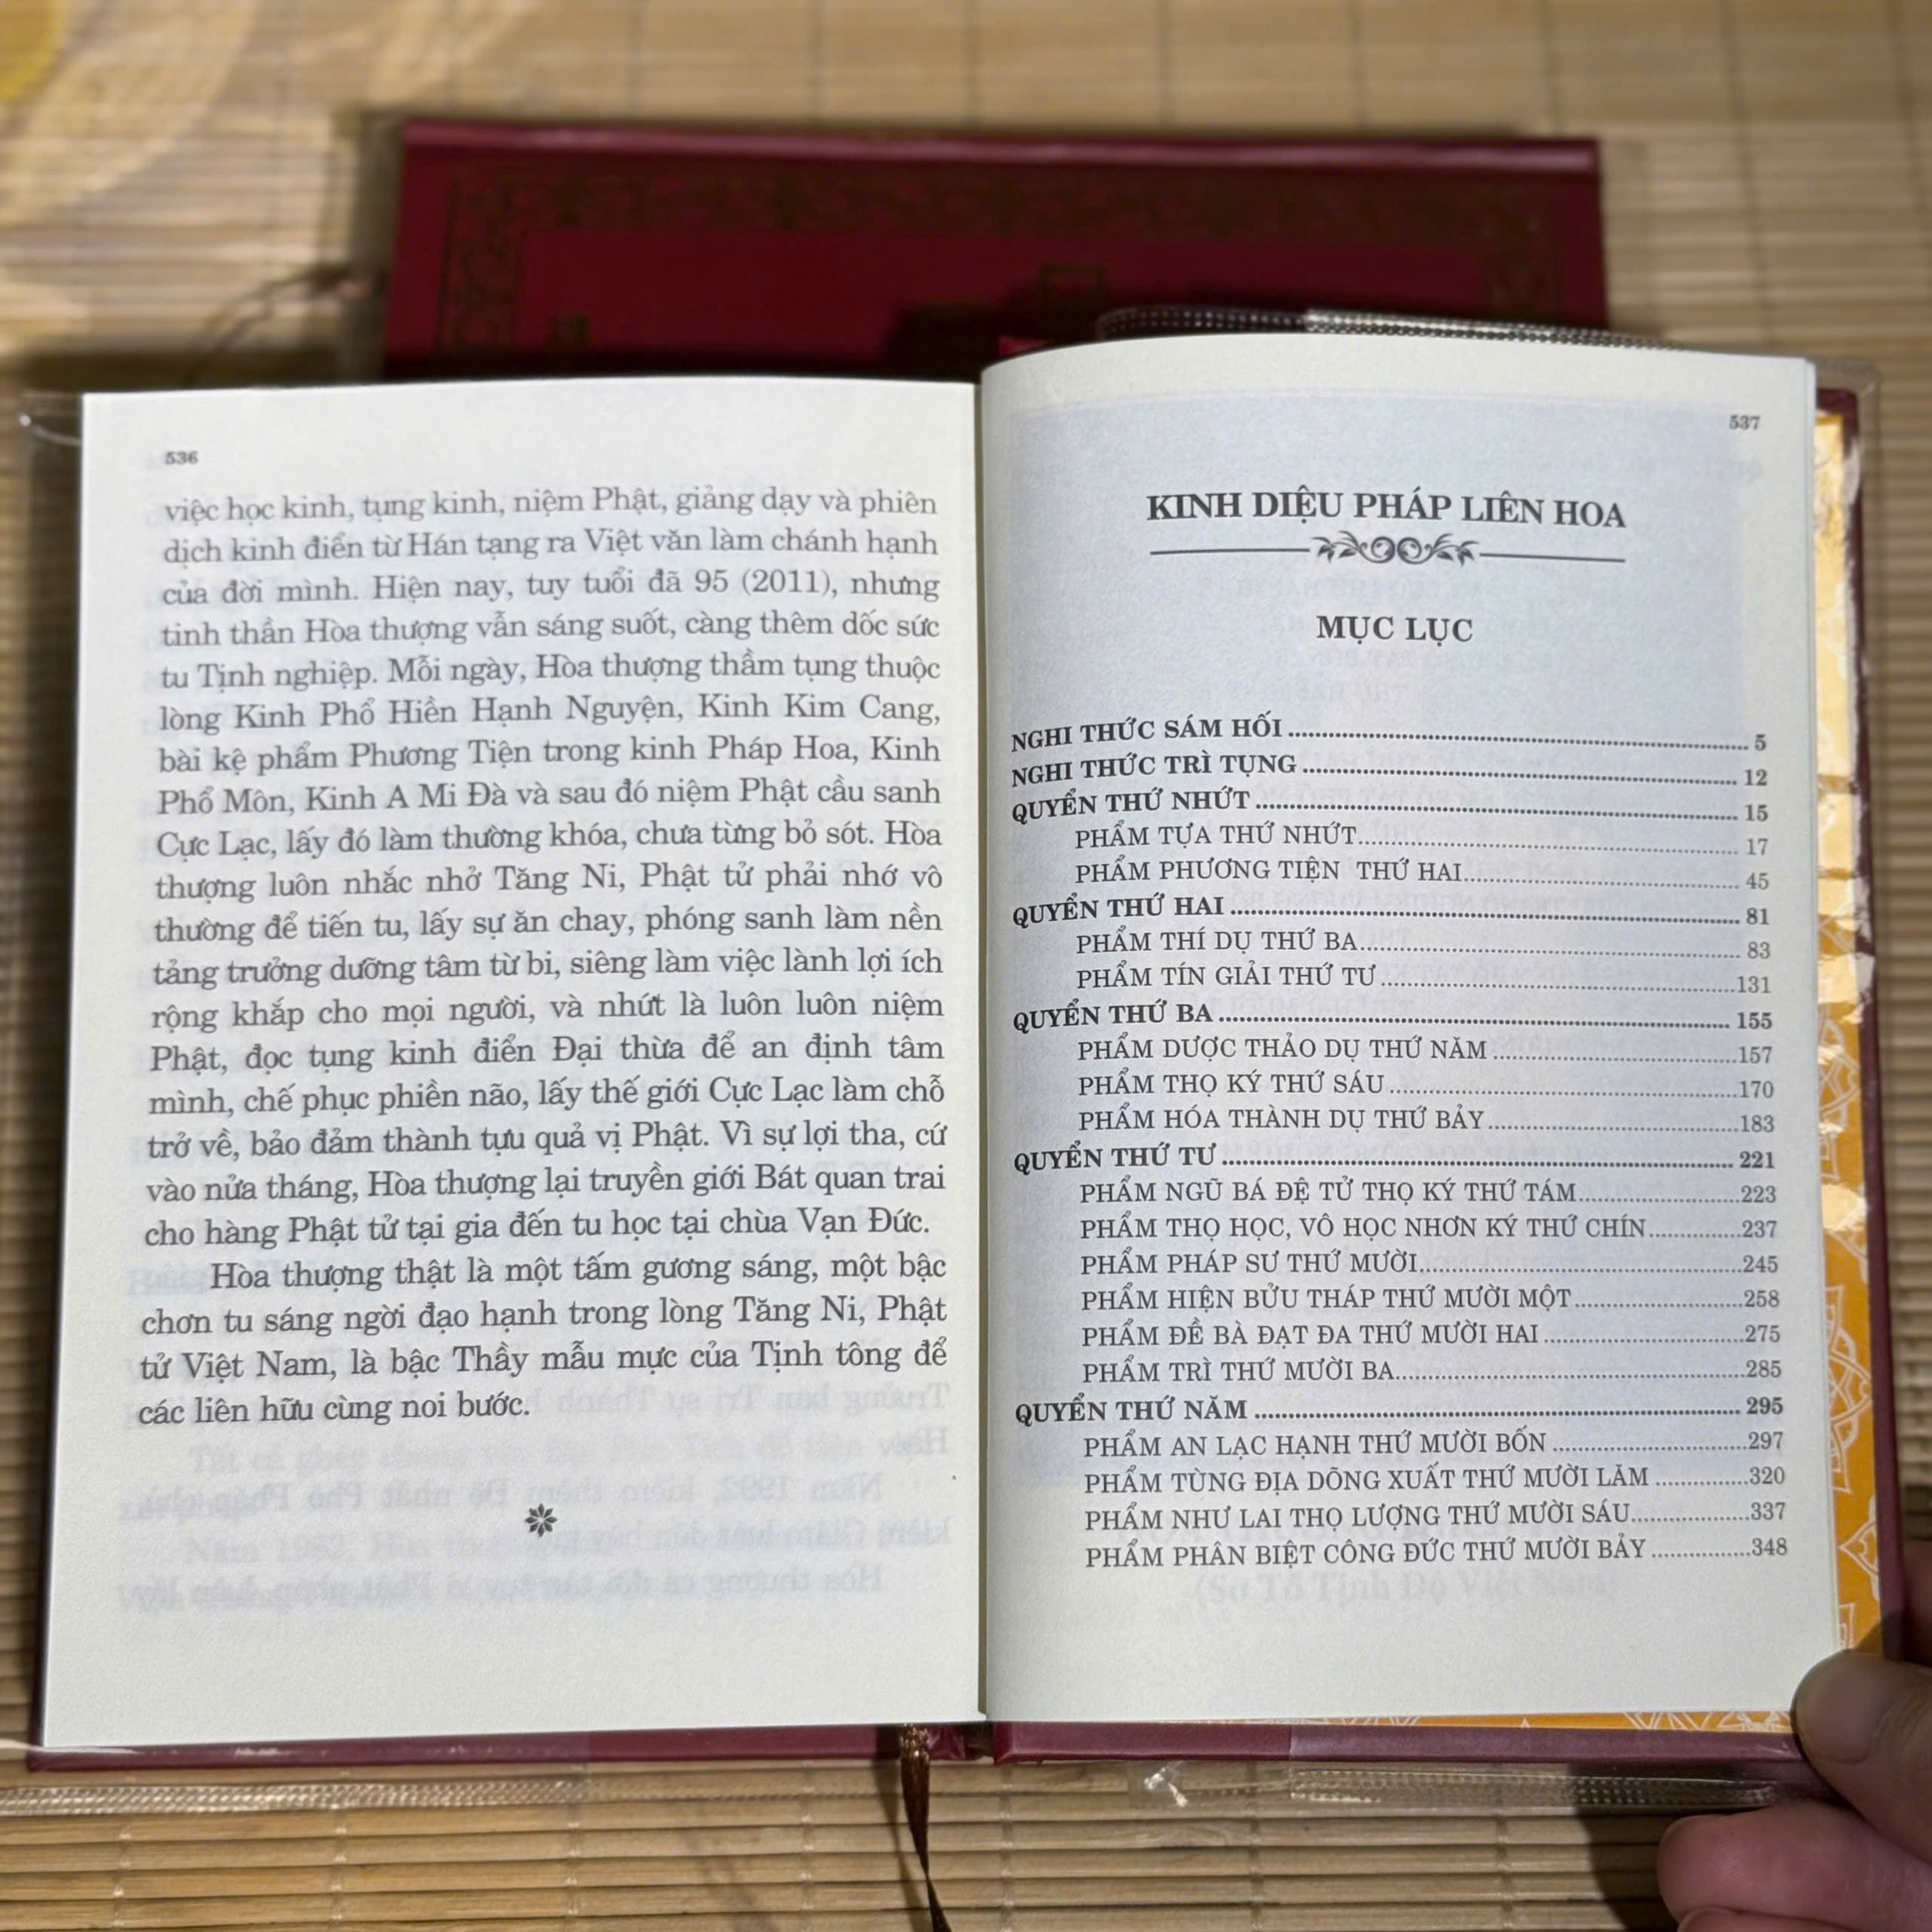 536
việc học kinh, tụng kinh, niệm Phật, giảng dạy và phiên
dịch kinh điển từ Hán tạng ra Việt văn làm chánh hạnh
của đời mình. Hiện nay, tuy tuổi đã 95 (2011), nhưng
tinh thần Hòa thượng vẫn sáng suốt, càng thêm dốc sức
tu Tịnh nghiệp. Mỗi ngày, Hòa thượng thầm tụng thuộc
lòng Kinh Phổ Hiền Hạnh Nguyện, Kinh Kim Cang,
bài kệ phẩm Phương Tiện trong kinh Pháp Hoa, Kinh
Phổ Môn, Kinh A Mi Đà và sau đó niệm Phật cầu sanh
Cực Lạc, lấy đó làm thường khóa, chưa từng bỏ sót. Hòa
thượng luôn nhắc nhở Tăng Ni, Phật tử phải nhớ vô
thường để tiến tu, lấy sự ăn chay, phóng sanh làm nền
tảng trưởng dưỡng tâm từ bi, siêng làm việc lành lợi ích
rộng khắp cho mọi người, và nhứt là luôn luôn niệm
Phật, đọc tụng kinh điển Đại thừa để an định tâm
mình, chế phục phiền não, lấy thế giới Cực Lạc làm chỗ
trở về, bảo đảm thành tựu quả vị Phật. Vì sự lợi tha, cứ
vào nửa tháng, Hòa thượng lại truyền giới Bát quan trai
cho hàng Phật tử tại gia đến tu học tại chùa Vạn Đức.
Hòa thượng thật là một tấm gương sáng, một bậc
chơn tu sáng ngời đạo hạnh trong lòng Tăng Ni, Phật
tử Việt Nam, là bậc Thầy mẫu mực của Tịnh tông để
các liên hữu cùng noi bước.
537
KINH DIỆU PHÁP LIÊN HOA
MỤC LỤC
NGHI THỨC SÁM HỐI ... 5
NGHI THỨC TRÌ TỤNG ... 12
QUYỂN THỨ NHỨT ... 15
PHẨM TỰA THỨ NHỨT ... 17
PHẨM PHƯƠNG TIỆN THỨ HAI ... 45
QUYỂN THỨ HAI ... 81
PHẨM THÍ DỤ THỨ BA ... 83
PHẨM TÍN GIẢI THỨ TƯ ... 131
QUYỂN THỨ BA ... 155
PHẨM DƯỢC THẢO DỤ THỨ NĂM ... 157
PHẨM THỌ KÝ THỨ SÁU ... 170
PHẨM HÓA THÀNH DỤ THỨ BẢY ... 183
QUYỂN THỨ TƯ ... 221
PHẨM NGŨ BÁ ĐỆ TỬ THỌ KÝ THỨ TÁM ... 223
PHẨM THỌ HỌC, VÔ HỌC NHƠN KÝ THỨ CHÍN ... 237
PHẨM PHÁP SƯ THỨ MƯỜI ... 245
PHẨM HIỆN BỬU THÁP THỨ MƯỜI MỘT ... 258
PHẨM ĐỀ BÀ ĐẠT ĐA THỨ MƯỜI HAI ... 275
PHẨM TRÌ THỨ MƯỜI BA ... 285
QUYỂN THỨ NĂM ... 295
PHẨM AN LẠC HẠNH THỨ MƯỜI BỐN ... 297
PHẨM TÙNG ĐỊA DÕNG XUẤT THỨ MƯỜI LĂM ... 320
PHẨM NHƯ LAI THỌ LƯỢNG THỨ MƯỜI SÁU ... 337
PHẨM PHÂN BIỆT CÔNG ĐỨC THỨ MƯỜI BẢY ... 348